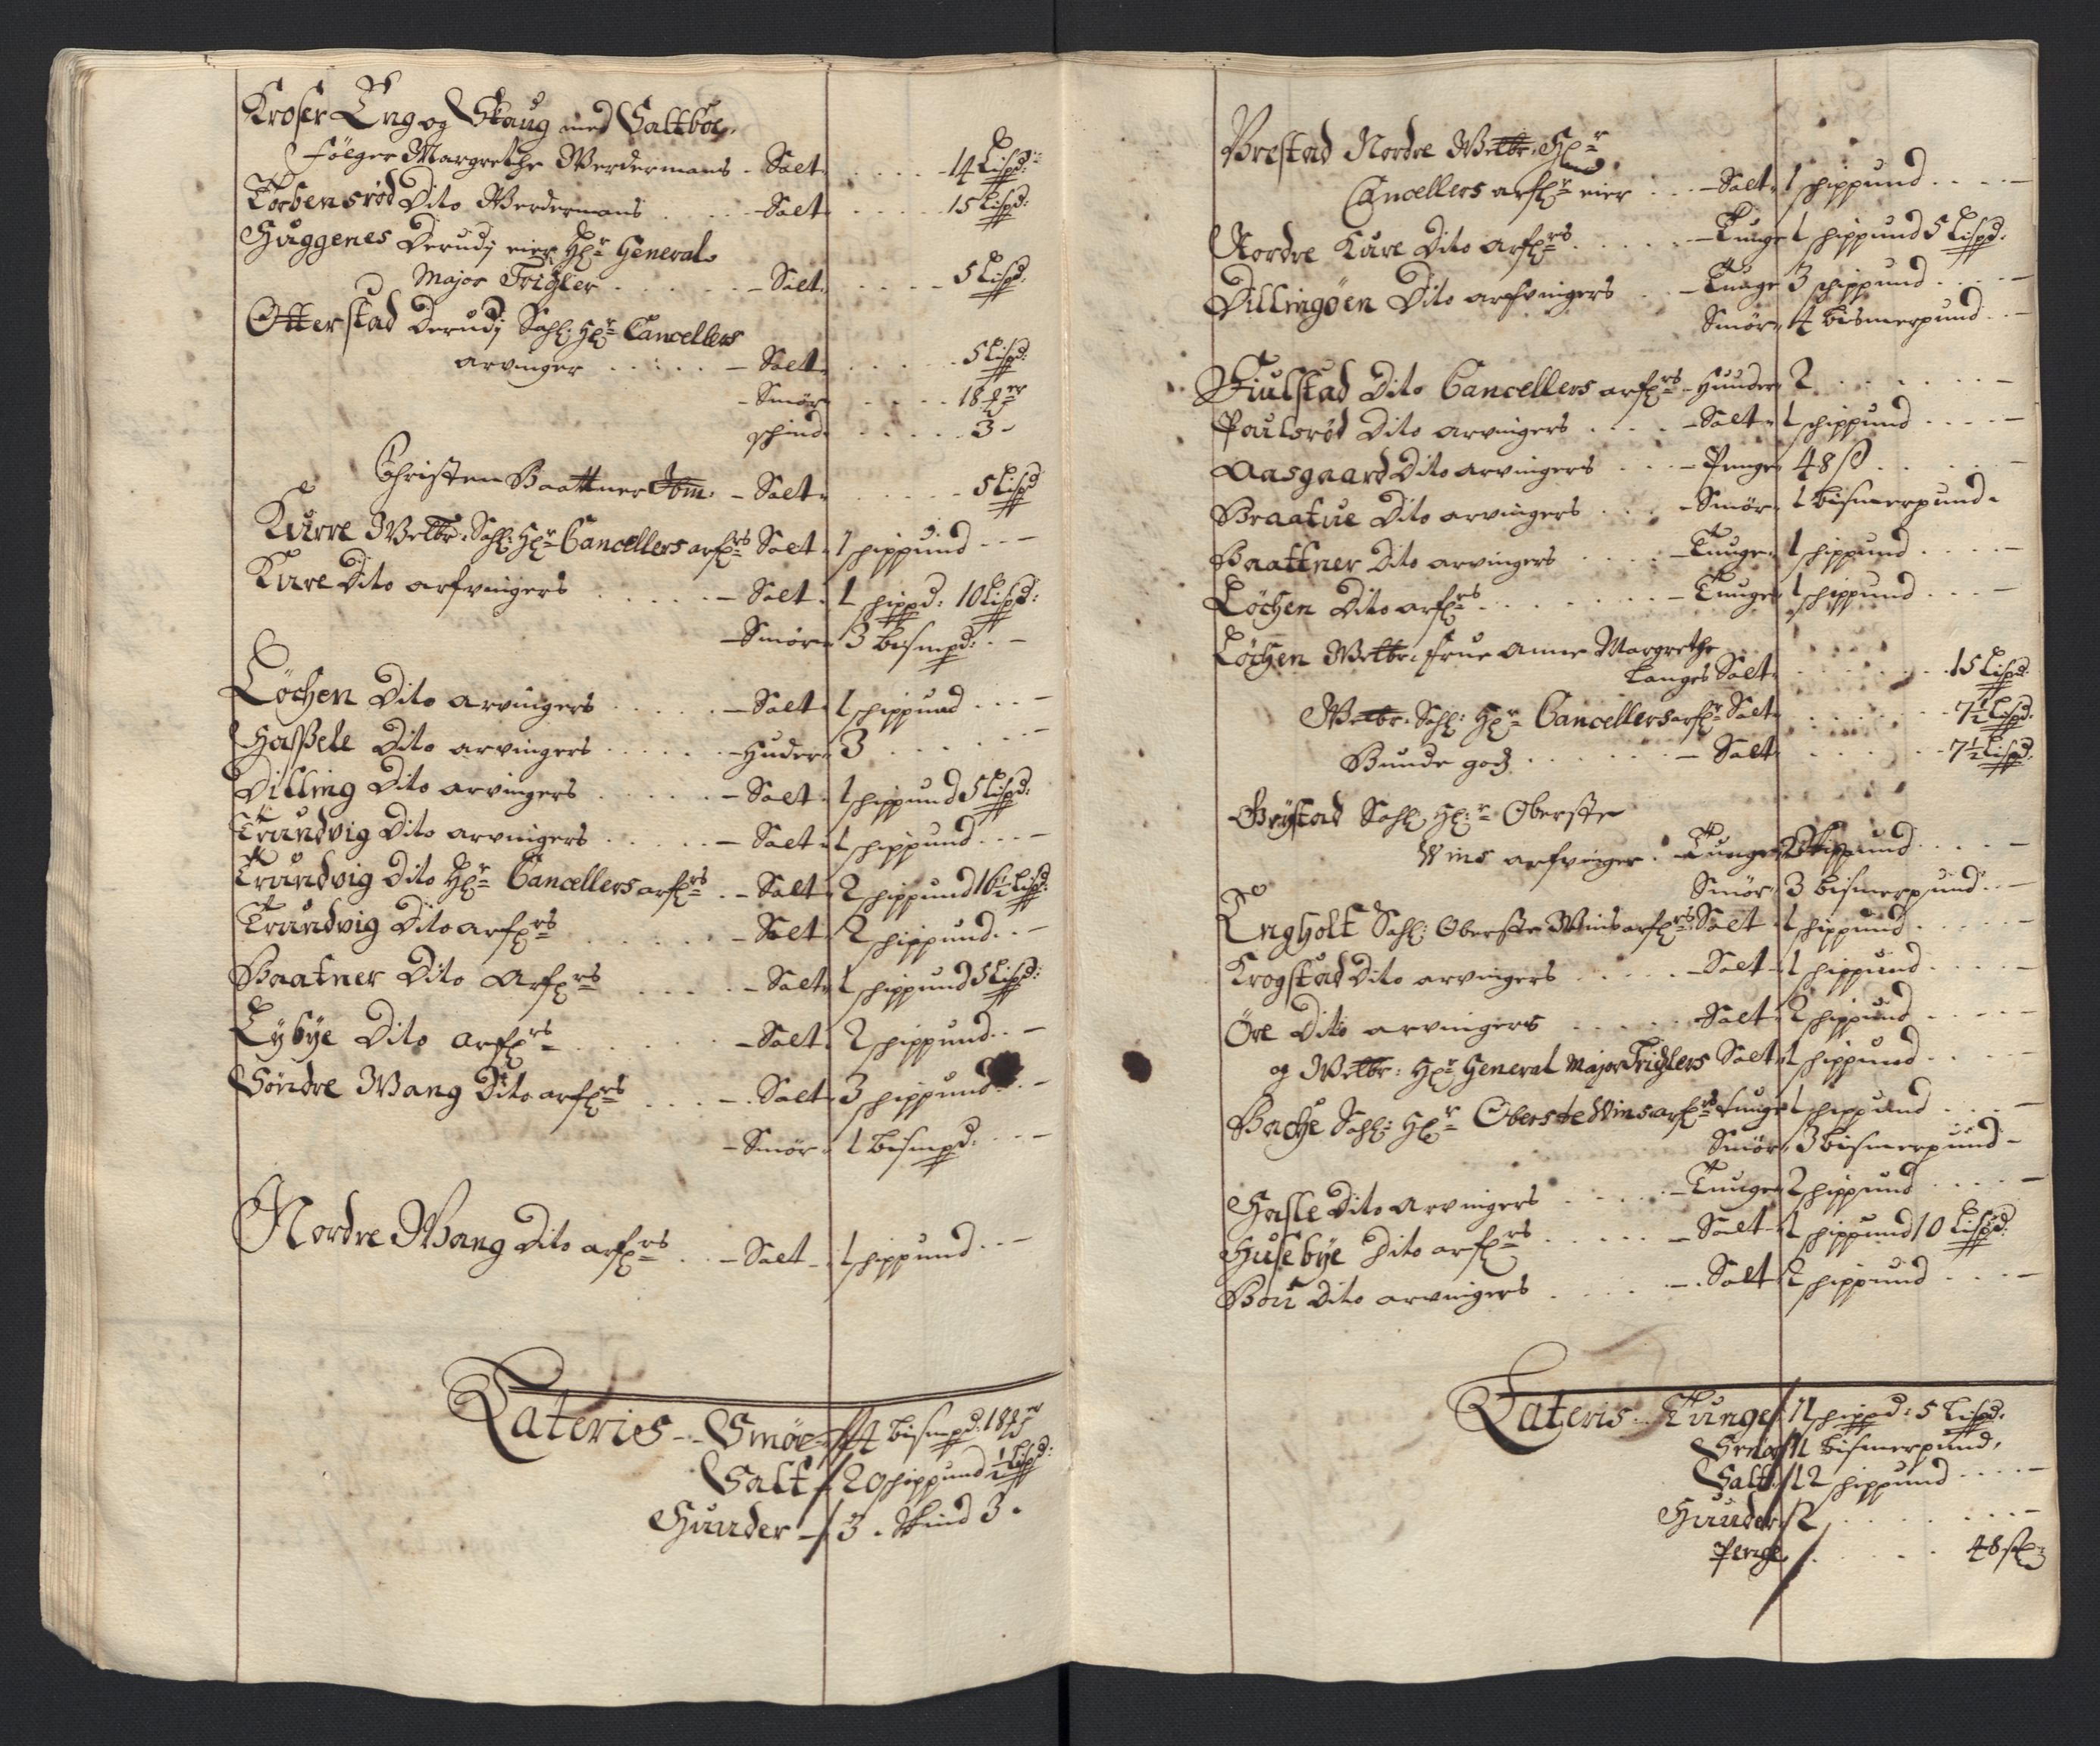 Kroser Eng og Skaug med Saltboe,
følger Margrethe Werdermans - Salt 14 Lispd:
Torbensrød Dito Werdermans - Salt 15 Lispd:
Huggenes Derudj eier Hr General
Major Trigler - Salt 5 Lispd:
Otterstad Derudj Sahl: Hr Cancellers
arvinger - Salt 5 Lispd:
- Smør 18
schind 3 -
Christen Baattner - Salt 5 Lispd
Kurre Welbr: Sahl: Hr Cancellers arfrs Salt 1 schippund
Kure Dito arfvingers - Salt 1 schippd: 10 Lispd:
- Smør 3 bismpd:
Löchen Dito arvingers - Salt 1 schippund
Haßele Dito arvingers - Huder 3
Dilling Dito arvingers - Salt 1 schippund 5 Lispd:
Trundvig Dito arvingers - Salt 1 schippund
Trundvig Dito Hr Cancellers arfrs - Salt 2 schippund 16½ Lispd:
Trundvig Dito arfrs - Salt 2 schippund
Baatner Dito Arfrs - Salt 1 schippund 5 Lispd:
Lybye Dito arfrs - Salt 2 schippund
Søndre Wang Dito arfrs - Salt 3 schippund
- Smør 1 bismpd:
Nordre Wang Dito arfrs - Salt - 1 schippund
Lateries - Smør 4 bismpd: 18
Salt 20 schippund ½ Lispd:
Huuder - 3 - Skind 3 -
Brestad Nordre Welbr: Hr
Cancellers arfr eier - Salt 1 schippund
Nordre Kure Dito arfrs - Tunge 1 schippund 5 Lispd:
Dillingøen Dito arfvingers - Tunge 3 schippund
Smør 4 bismerpund
Fiulstad Dito Cancellers arfrs - Huuder 2
Poulsrød Dito arvingers - Salt 1 schippund
Aasgaard Dito arvingers - Penge 48 ß
Braatue Dito arvingers - Smør 1 bismerpund -
Baattner Dito arvingers - Tunge 1 schippund
Löchen Dito arfrs - Tunge 1 schippund
Løchen Welbr: frue Anne Margrethe
Langes Salt 15 Lispd:
Welbr: Sahl: Hr Cancellers arfr Salt 7½ Lispd:
Bunde godz - Salt 7½ Lispd:
Sahl: Hr Oberste
Wins arfvinger - Tunge 2 schippund
Smør 3 bismerpund
Engholt Sahl: Oberste Wins arfrs Salt 1 schippund
Krogstad Dito arvingers - Salt - 1 schippund
Öre Dito arvingers - Salt 2 schippund
og Welbr: Hr General Major Triglers Salt 1 schippund
Bache Sahl: Hr Oberste Wins arfrs tunge 1 schippund
Smør 3 bismerpund -
Hasle Dito arvingers - Tunge 2 schippund
Husebye Dito arfrs - Salt - 1 schippund 10 Lispd:
Bou Dito arvingers - Salt 2 schippund
Lateris - Tunge 11 schippd: 5 Lispd:
Smør 11 bismerpund,
Salt 12 schippund
Huuder 2
Penge 48 ß